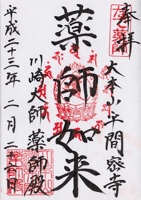 奉拝
大本山平間寺
薬師如来
川崎大師 薬師殿
平成二十三年 二月 二日